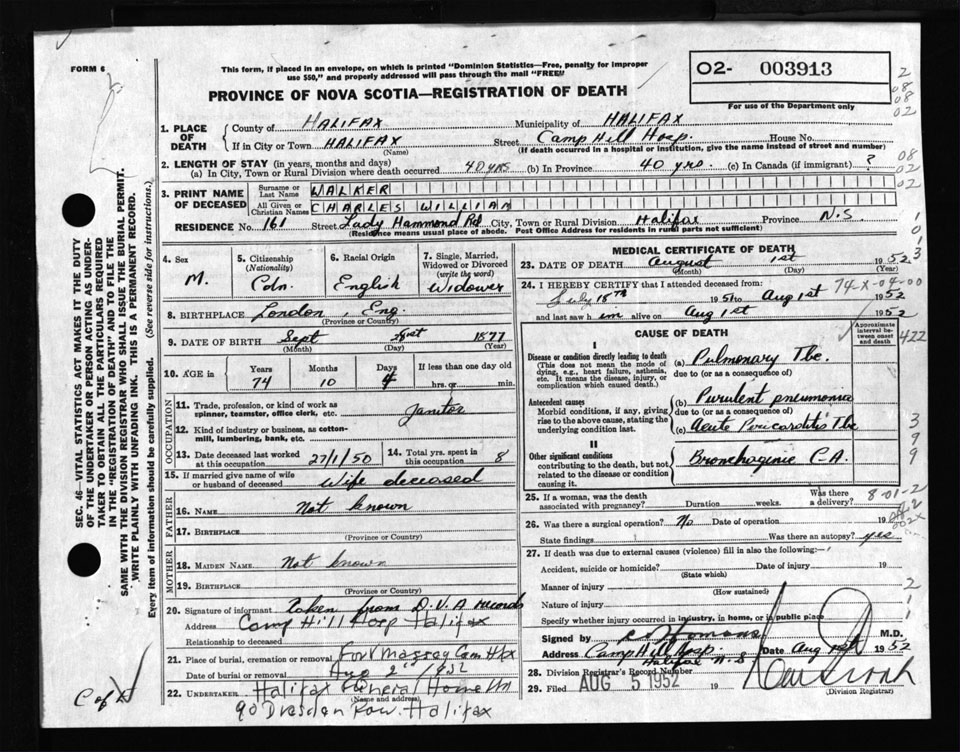 FORM 6
This form, if placed in an envelope, on which is printed "Dominion Statistics—Free, penalty for improper
use $50," and properly addressed will pass through the mail "FREE"
02- 003913
For use of the Department only
PROVINCE OF NOVA SCOTIA—REGISTRATION OF DEATH
2
08
08
02
1. PLACE OF DEATH
County of HALIFAX Municipality of HALIFAX
If in City or Town HALIFAX Street Camp Hill Hosp. House No.
(Name) (If death occurred in a hospital or institution, give the name instead of street and number)
2. LENGTH OF STAY (in years, months and days)
(a) In City, Town or Rural Division where death occurred 40 yrs (b) In Province 40 yrs. (c) In Canada (if immigrant) ?
08
02
3. PRINT NAME OF DECEASED
Surname or Last Name WALKER
All Given or Christian Names CHARLES WILLIAM
RESIDENCE No. 161 Street Lady Hammond Rd City, Town or Rural Division Halifax Province N.S
(Residence means usual place of abode. Post Office Address for residents in rural parts not sufficient)
SEC. 46—VITAL STATISTICS ACT MAKES IT THE DUTY
OF THE UNDERTAKER OR PERSON ACTING AS UNDER-
TAKER TO OBTAIN ALL THE PARTICULARS REQUIRED
IN THE "REGISTRATION OF DEATH" AND TO FILE THE
SAME WITH THE DIVISION REGISTRAR WHO SHALL ISSUE THE BURIAL PERMIT.
WRITE PLAINLY WITH UNFADING INK. THIS IS A PERMANENT RECORD.
Every item of information should be carefully supplied. (See reverse side for instructions.)
4. Sex
M.
5. Citizenship
(Nationality)
Cdn.
6. Racial Origin
English
7. Single, Married,
Widowed or Divorced
(write the word)
Widower
8. BIRTHPLACE London, Eng.
(Province or Country)
9. DATE OF BIRTH Sept 1877
(Month) (Day) (Year)
10. AGE in
Years Months Days If less than one day old
74 10 4 hrs. or min.
OCCUPATION
11. Trade, profession, or kind of work as
spinner, teamster, office clerk, etc. Janitor
12. Kind of industry or business, as cotton-
mill, lumbering, bank, etc.
13. Date deceased last worked
at this occupation 27/1/50
14. Total yrs. spent in
this occupation 8
15. If married give name of wife
or husband of deceased Wife deceased
FATHER
16. NAME Not known
17. BIRTHPLACE
(Province or Country)
MOTHER
18. MAIDEN NAME Not known
19. BIRTHPLACE
(Province or Country)
20. Signature of informant taken from D.V.A records
Address Camp Hill Hosp Halifax
Relationship to deceased
21. Place of burial, cremation or removal Fort Massey Cem Hfx
Date of burial or removal Aug 2nd 1952
22. UNDERTAKER Halifax Funeral Home
(Name and address)
90 Dresden Row. Halifax
C of
MEDICAL CERTIFICATE OF DEATH
23. DATE OF DEATH August 1st 1952
(Month) (Day) (Year)
24. I HEREBY CERTIFY that I attended deceased from: 74-X-04-00
July 18th 1951 to Aug 1st 1952
and last saw him alive on Aug 1st 1952
CAUSE OF DEATH
Approximate
interval be-
tween onset
and death
422
I
Disease or condition directly leading to death
(This does not mean the mode of
dying, e.g., heart failure, asthenia,
etc. It means the disease, injury, or
complication which caused death.)
(a) Pulmonary Tbc.
due to (or as a consequence of)
Antecedent causes
Morbid conditions, if any, giving
rise to the above cause, stating the
underlying condition last.
(b) Purulent pneumonia
due to (or as a consequence of)
(c) Acute Pericarditis Tbc
II
Other significant conditions
contributing to the death, but not
related to the disease or condition
causing it.
Bronchogenic C-A.
3
9
9
25. If a woman, was the death
associated with pregnancy? Duration weeks. Was there
a delivery? 8-01-2
26. Was there a surgical operation? No Date of operation 19
State findings Was there an autopsy? yes
27. If death was due to external causes (violence) fill in also the following:—
Accident, suicide or homicide? Date of injury 19
(State which)
Manner of injury
(How sustained)
Nature of injury
Specify whether injury occurred in industry, in home, or in public place
Signed by M.D.
Address Camp Hill Hosp. Date Aug 1st 1952
Halifax N.S.
28. Division Registrar's Record Number
29. Filed AUG 5 1952 19
(Division Registrar)